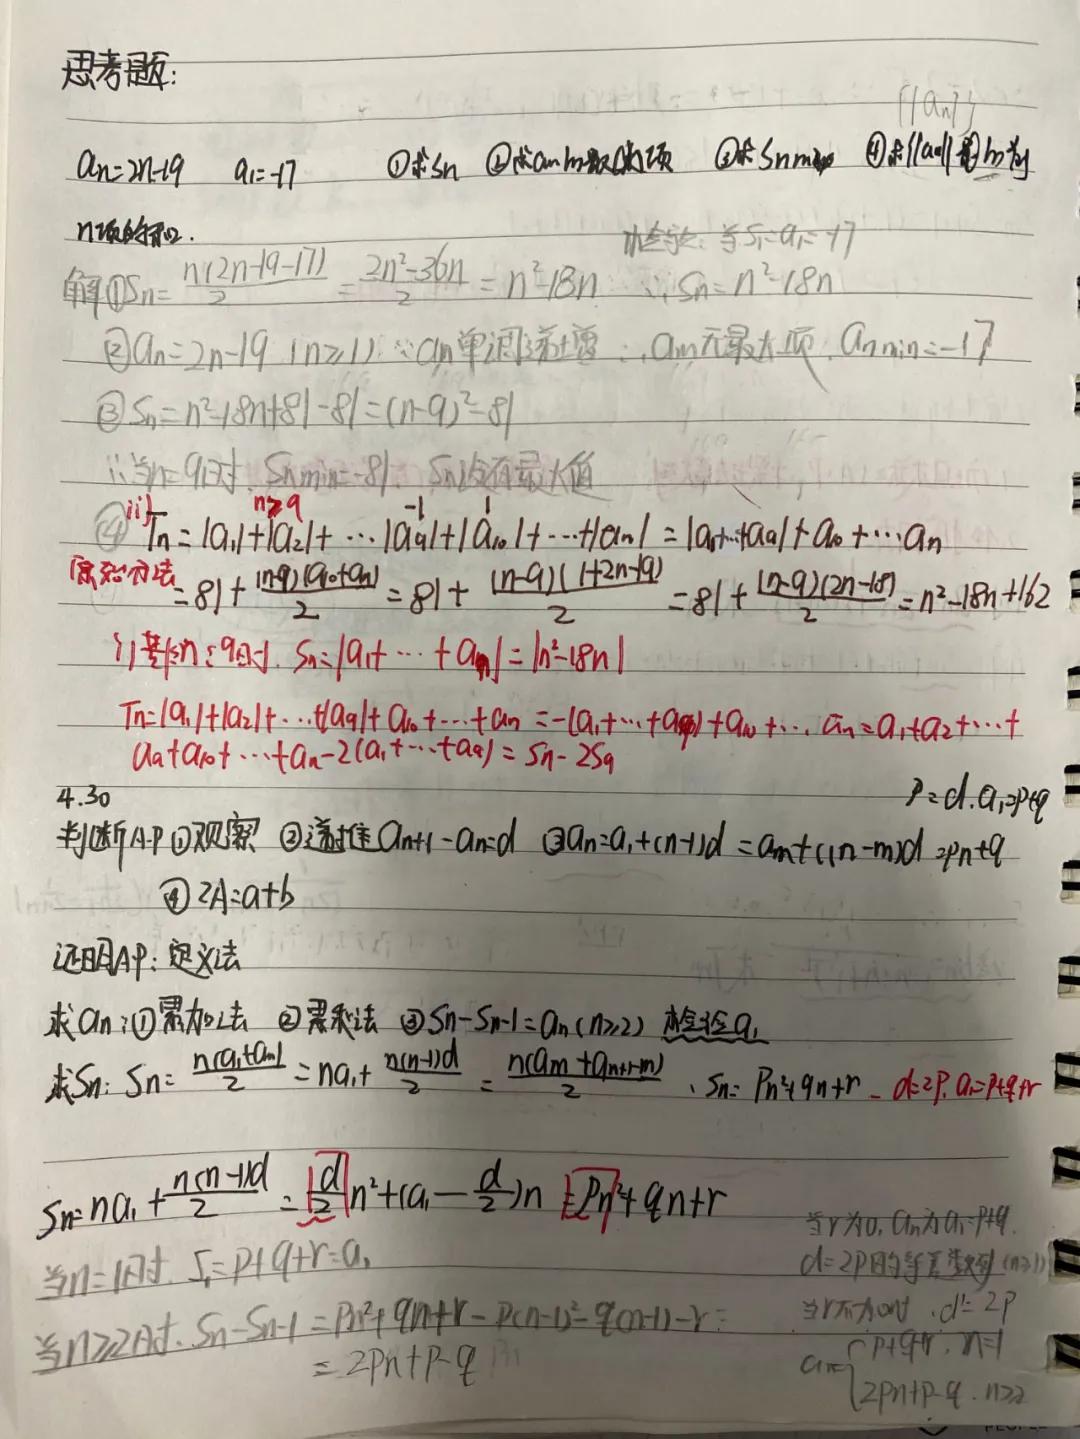 思考题:
{|an|}
an=2n-19 a₁=-17 ①求Sn ②求an 的项 ③求Sn ④求{|an|}前
n项的和.
检验: 当S₁=a₁=-17
解①Sn= n(2n-19-17)/2 = 2n²-36n/2 = n²-18n ∴Sn=n²-18n
②an=2n-19 (n≥1) ∵an单调递增 ∴an无最大项. an min=-17
③Sn=n²-18n+81-81=(n-9)²-81
∴当n=9时, Sn min=-81, Sn没有最大值
ii) n≥9 -1 1
④ Tn=|a₁|+|a₂|+…|a₉|+|a₁₀|+…+|an|=|a₁+…+a₉|+a₁₀+…an
原始方法 =81+ (n-9)(a₁₀+an)/2 =81+ (n-9)(1+2n-19)/2 =81+ (n-9)(2n-18)/2 =n²-18n+162
i) n≤9时. Sn=|a₁+…+an|=|n²-18n|
Tn=|a₁|+|a₂|+…+|a₉|+a₁₀+…+an=-(a₁+…+a₉)+a₁₀+…an=a₁+a₂+…+
a₉+a₁₀+…+an-2(a₁+…+a₉)=Sn-2S₉
4.30 P=d.a₁=p+q
判断A·P ①观察 ②递推an+1-an=d ③an=a₁+(n-1)d=am+(n-m)d=pn+q
④2A=a+b
证明AP: 定义法
求an:①累加法 ②累乘法 ③Sn-Sn-1=an(n≥2) 检验a₁
求Sn: Sn= n(a₁+an)/2 =na₁+ n(n-1)d/2 = n(am+an+1-m)/2 、Sn=Pn²+qn+r - d=2P. a₁=P+q+r
Sn=na₁+ n(n-1)d/2 = d/2 n²+(a₁- d/2)n =Pn²+qn+r
当r为0, an为a₁=p+q.
当n=1时. S₁=P+q+r=a₁
d=2p的等差数列(n≥1)
当r不为0时, d=2p
当n≥2时. Sn-Sn-1=Pn²+qn+r-P(n-1)²-q(n-1)-r=
an={p+q+r, n=1
=2Pn+P-q
2pn+p-q, n≥2